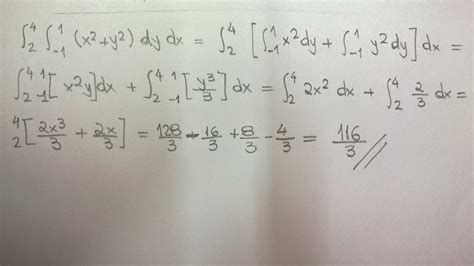 ∫₂⁴ ∫₋₁¹ (x²+y²) dy dx = ∫₂⁴ [∫₋₁¹ x² dy + ∫₋₁¹ y² dy] dx =
∫₂⁴ ₋₁¹[x²y] dx + ∫₂⁴ ₋₁¹[y³/3] dx = ∫₂⁴ 2x² dx + ∫₂⁴ 2/3 dx =
₂⁴[2x³/3 + 2x/3] = 128/3 - 16/3 + 8/3 - 4/3 = 116/3 //